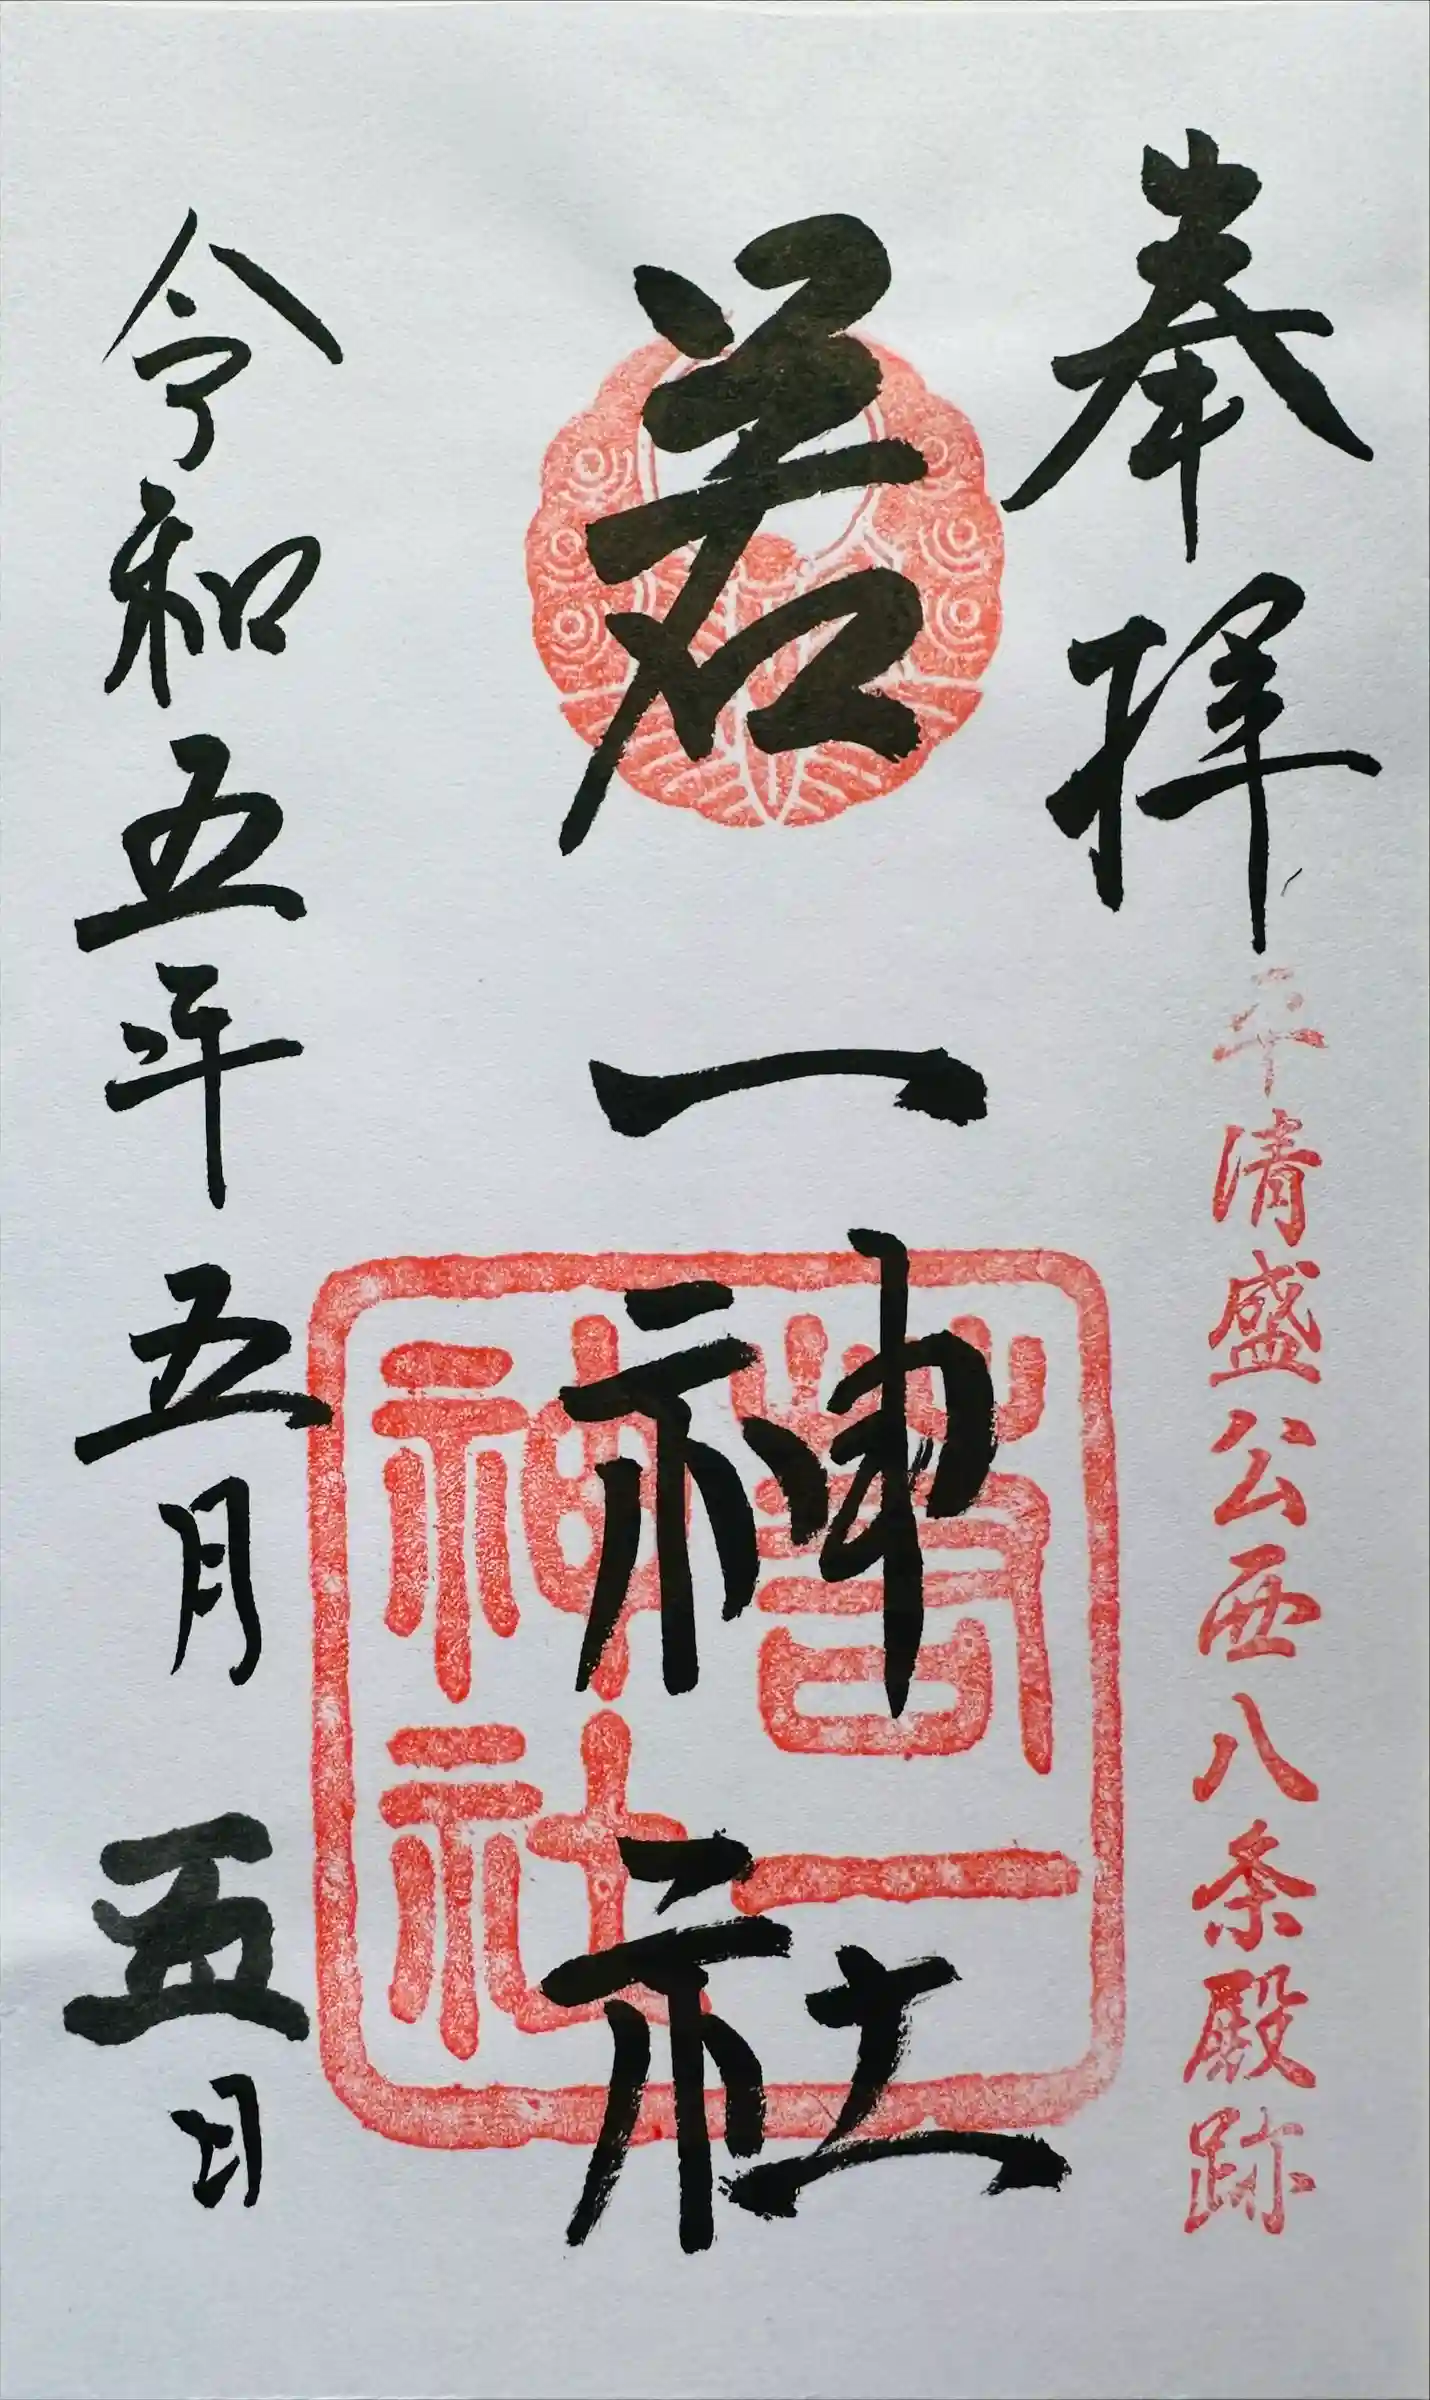 奉拝
平清盛公西八条殿跡
若一神社
若一
神社
令和五年五月五日